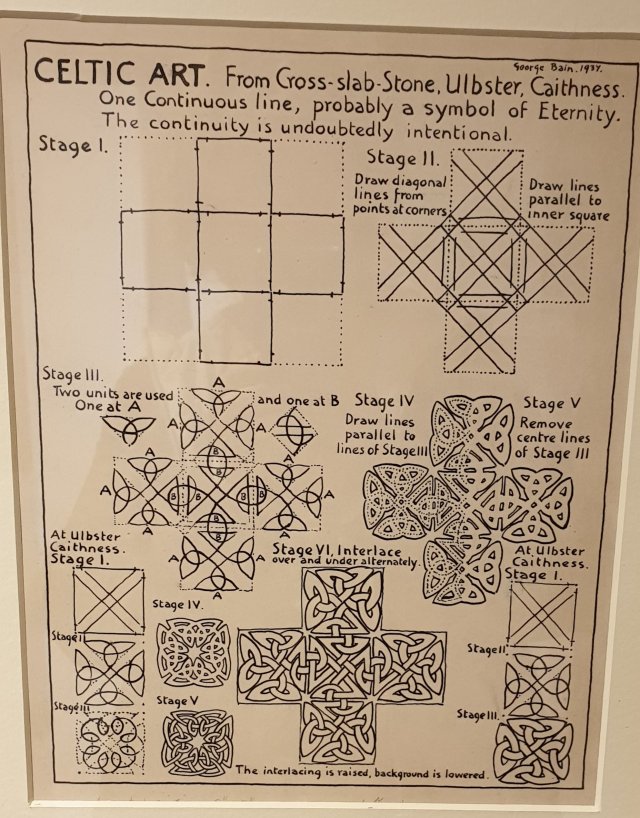 George Bain. 1937.
CELTIC ART. From Cross-slab-Stone, Ulbster, Caithness.
One Continuous line, probably a symbol of Eternity.
The continuity is undoubtedly intentional.
Stage I.
Stage II.
Draw diagonal
lines from
points at corners
Draw lines
parallel to
inner square
Stage III.
Two units are used
One at A
and one at B
A
A
A
A
A
A
A
A
A
A
A
A
B
B
B
B
B
B
B
B
Stage IV
Draw lines
parallel to
lines of Stage III
Stage V
Remove
centre lines
of Stage III
At Ulbster
Caithness.
Stage I.
Stage II
Stage III
Stage IV.
Stage V
Stage VI, Interlace
over and under alternately.
At Ulbster
Caithness.
Stage I.
Stage II
Stage III.
The interlacing is raised, background is lowered.